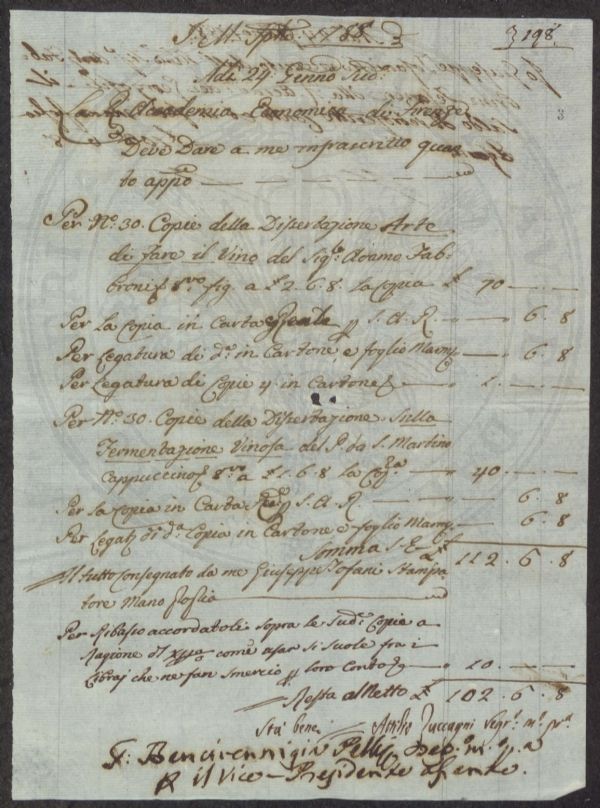 3 198.
Adì. 24. Genno Sud.
La R. Accademia Economica di Firenze
Deve Dare a me infrascritto quan
to appo
Per No. 30. Copie della Dissertazione Arte
di fare il Vino del Sigr. Adamo Fab-
broni 8vo fig. a £ 2. 6. 8. la Copia £ 70
Per la Copia in Carta Reale S. A. R. 6. 8
Per Legatura di da. in Cartone e foglio Marmo 6. 8
Per Legatura di Copie 4. in Cartone 1.
Per No. 30. Copie della Dissertazione Sulla
Fermentazione Vinosa del P. da S. Martino
Cappuccino 8vo a £ 1. 6. 8 la Copa. 40
Per la Copia in Carta S. A. R 6. 8
Per Legat. di da. Copia in Cartone e foglio Marmo 6. 8
Somma S. E. £ 112. 6. 8
Il tutto Consegnato da me Giuseppe Tofani Stampa
tore Mano
Per Ribasso accordatoli sopra le Sude. Copie a
Ragione come usar si suole fra i
Libraj che ne fan smercio loro Conto 10
Resta al Netto £ 102. 6. 8
Sta bene Attilio Zuccagni Segr. m. pa.
F. Bencivenni già Pelli
il Vice-Presidente
3